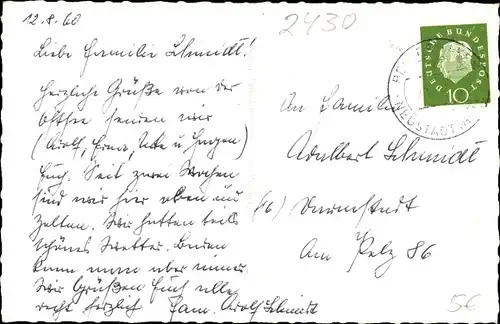 12.8.60
Liebe Familie Schmidt!
Herzliche Grüße von der
Ostsee senden wir
(Adolf, Erna, Uta u. Jürgen)
Euch. Seit zwei Wochen
sind wir hier oben und
zelten. Wir hatten teils
schönes Wetter. Baden
kann man aber immer.
Wir Grüßen Euch alle
recht herzlich Fam. Adolf Schmidt
2430
DEUTSCHE BUNDESPOST
10
NEUSTADT
An Familie
Adalbert Schmidt
(16) Darmstadt
Am Pelz 86
5€